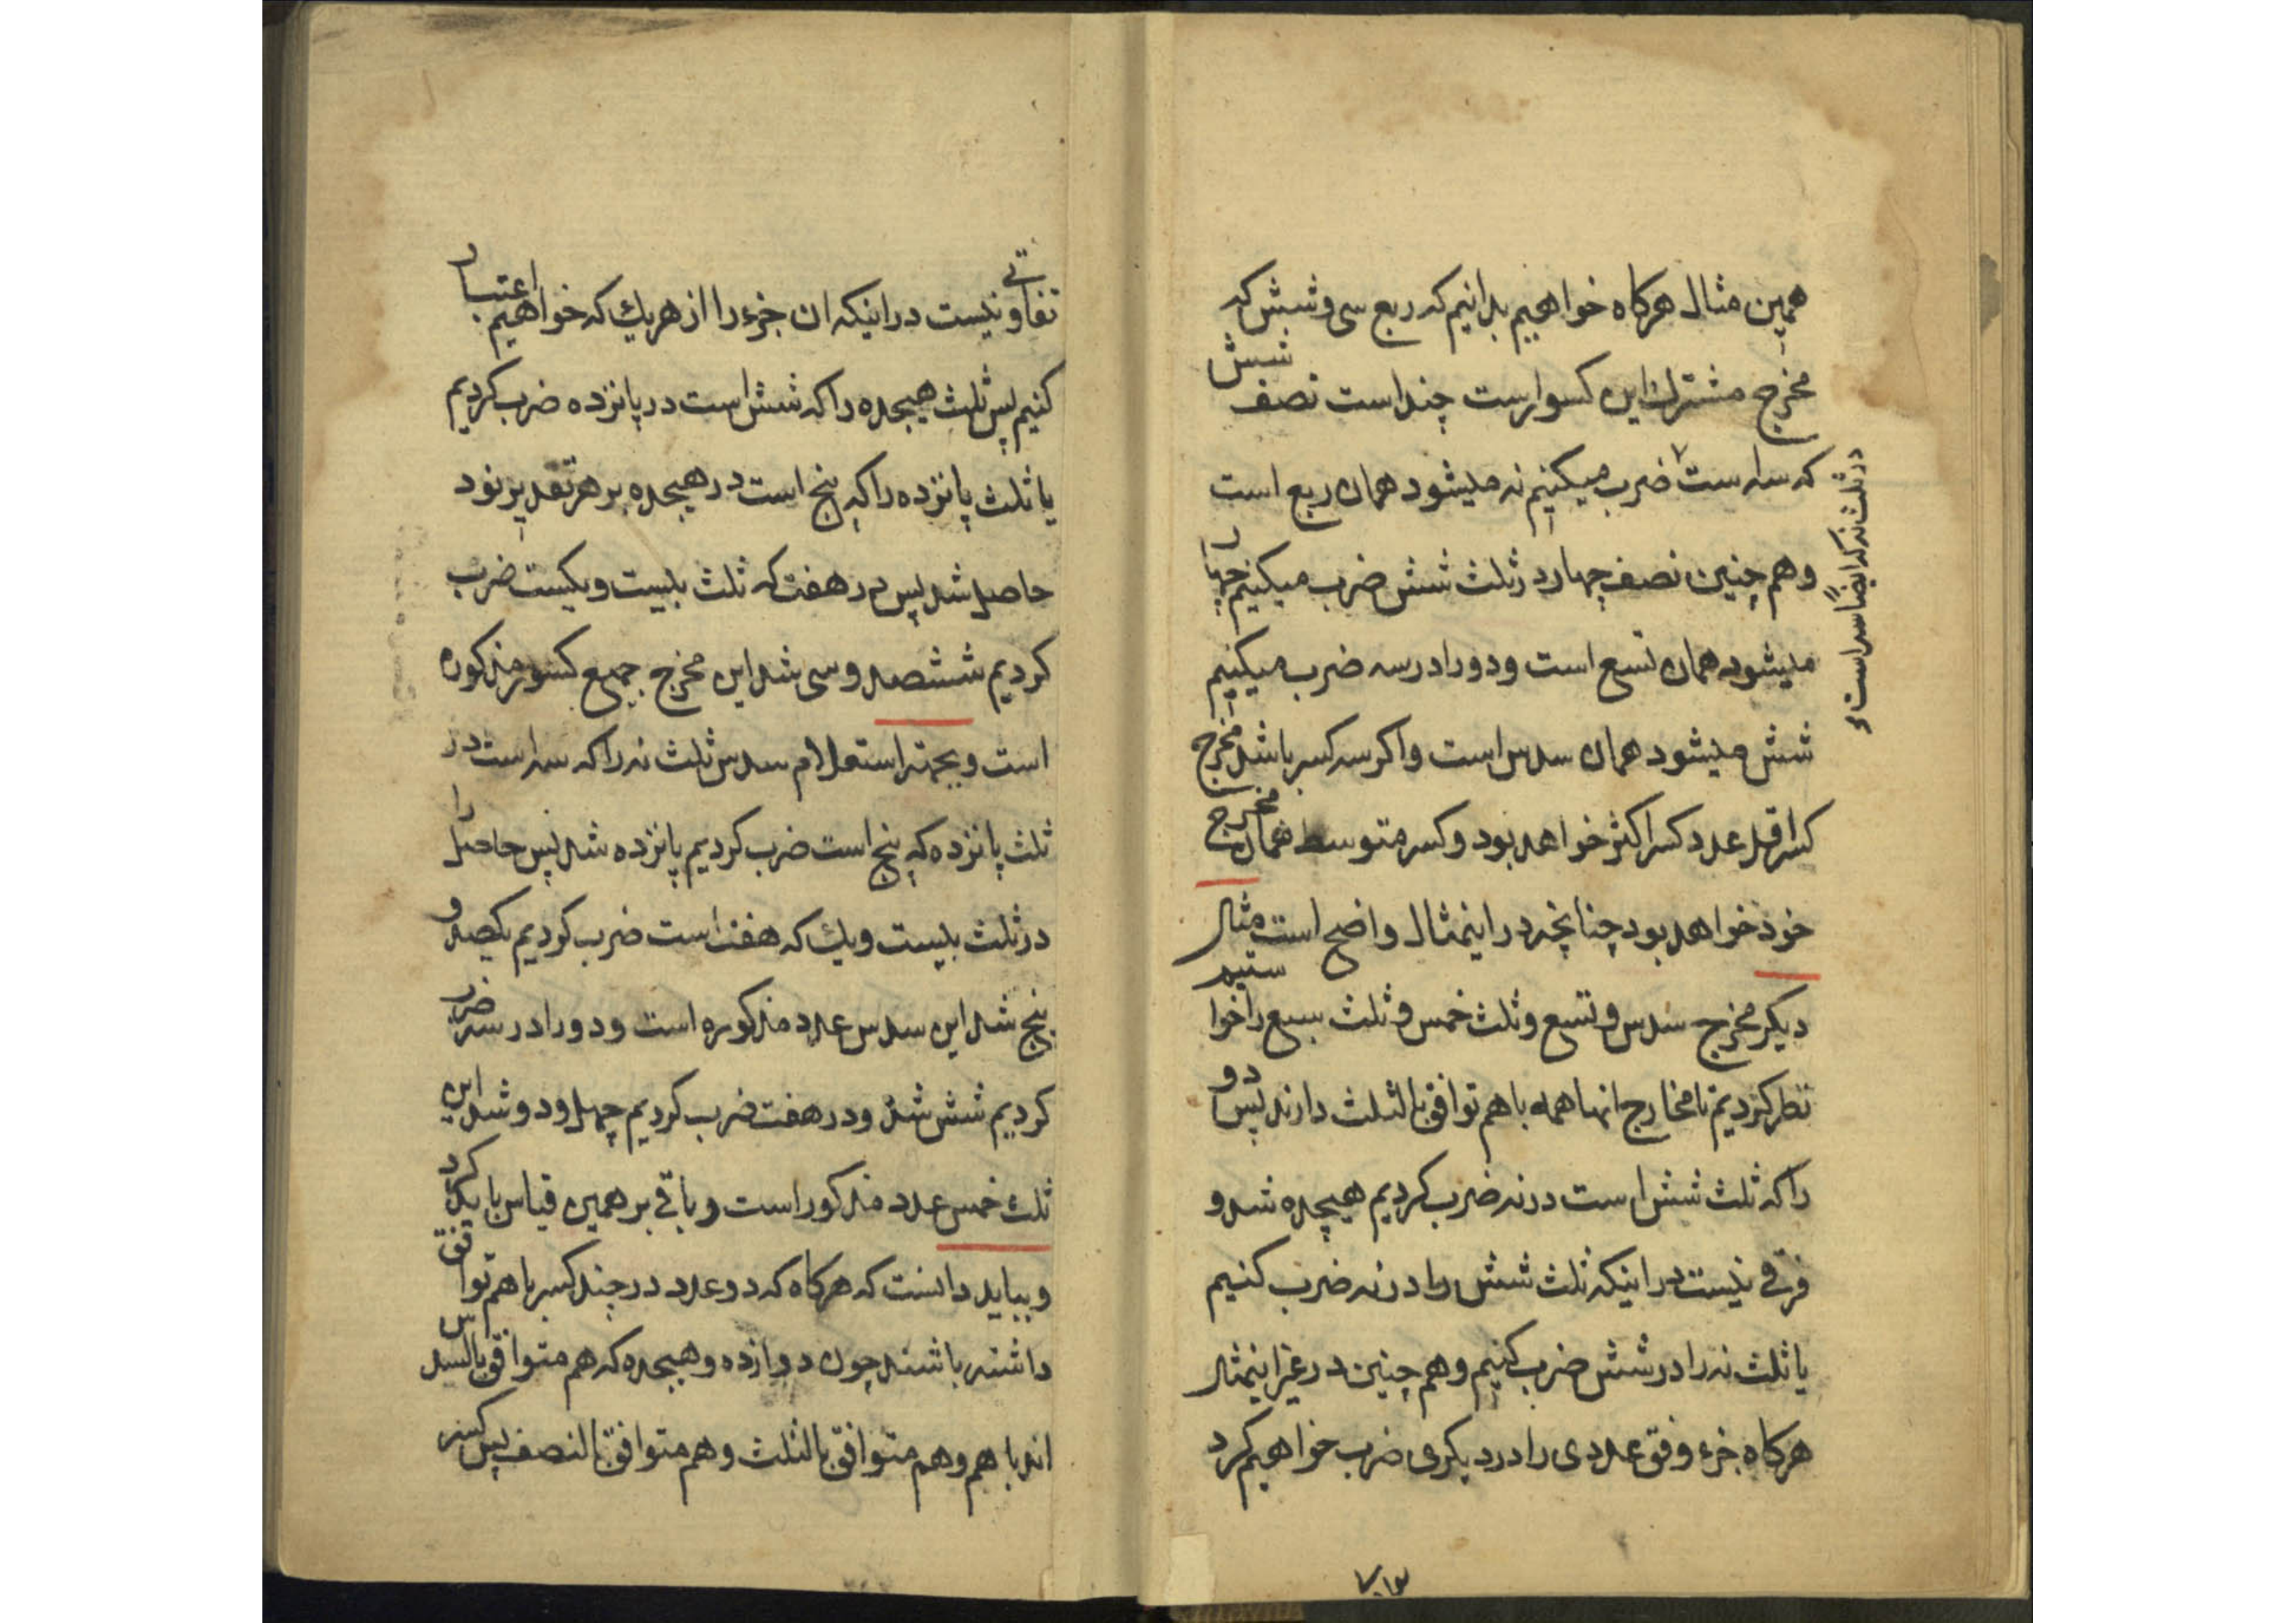 همین مثال هرکاه خواهیم بدانیم که ربع سی و شش که
مخرج مشترك این کسوارست چند است نصف شش
که سه است ضرب میکنیم نه میشود همان ربع است
در ثلث نه که ایضاً سه است
و هم چنین نصف چهار در ثلث شش ضرب میکنیم چهار
میشود همان تسع است و دو را در سه ضرب میکنیم
شش میشود همان سدس است و اکر سه کسر باشد مخرج
کسر اقل عدد کسر اکثر خواهد بود و کسر متوسط همان مخرج
خود خواهد بود چنانچه در اینمثال واضح است مثال
دیکر مخرج سدس و تسع و ثلث خمس و ثلث سبع را خواستیم
نظر کردیم تا مخارج انها همه با هم توافق بالثلث دارند پس دو
را که ثلث شش است در نه ضرب کردیم هیجده شد و
فرقی نیست در اینکه ثلث شش را در نه ضرب کنیم
یا ثلث نه را در شش ضرب کنیم و هم چنین در غیر اینمثال
هرکاه جزء وفق عددی را در دیکری ضرب خواهیم کرد
۷۰۱۳
تفاوتی نیست در اینکه ان جزء را از هر یك که خواهیم اعتبار
کنیم پس ثلث هیجده را که شش است در پانزده ضرب کردیم
یا ثلث پانزده را که پنج است در هیجده بر هر تقدیر نود
حاصل شد پس در هفت که ثلث بیست و یکیست ضرب
کردیم ششصد و سی شد این مخرج جمیع کسور مذکوره
است و بجهته استعلام سدس ثلث نه را که سه است در
ثلث پانزده که پنج است ضرب کردیم پانزده شد پس حاصل را
در ثلث بیست و یك که هفت است ضرب کردیم یکصد و
پنج شد این سدس عدد مذکوره است و دو را در سه ضرب
کردیم شش شد و در هفت ضرب کردیم چهل و دو شد این
ثلث خمس عدد مذکور است و باقی بر همین قیاس باید کرد
و بباید دانست که هرکاه که دو عدد در چند کسر با هم توافق
داشته باشند چون دوازده و هیجده که هم متوافق بالسدس
اند با هم و هم متوافق بالثلث و هم متوافق بالنصف پس کسر